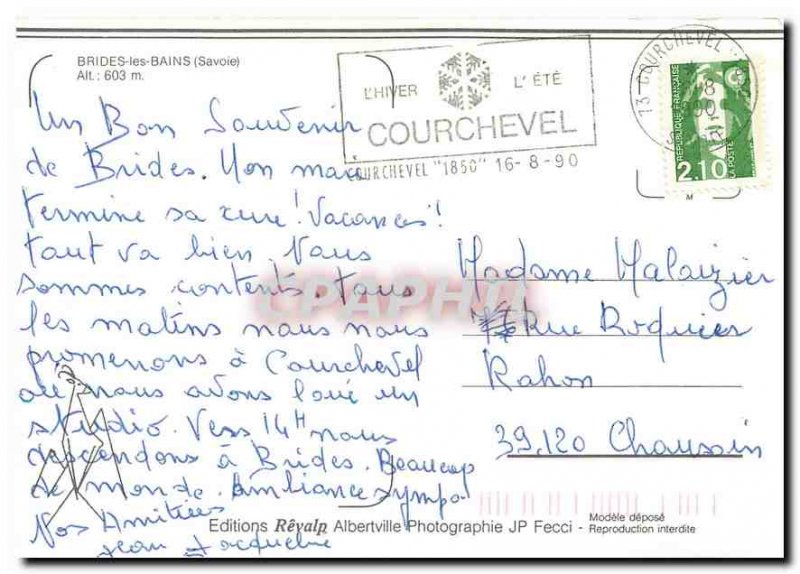 BRIDES-les-BAINS (Savoie)
Alt. : 603 m.
L'HIVER L'ÉTÉ
COURCHEVEL
COURCHEVEL "1850" 16-8-90
13 COURCHEVEL
RÉPUBLIQUE FRANÇAISE
LA POSTE
2,10
M
Un Bon Souvenir
de Brides. Mon mari
termine sa cure ! Vacances !
tout va bien. Nous
sommes contents. Tous
les matins nous nous
promenons à Courchevel
où nous avons loué un
studio. Vers 14H nous
descendons à Brides. Beaucoup
de monde. Ambiance sympa
Nos Amitiés
Jean Jacqueline
Madame Malaizier
Rue Roquier
Rahon
39.120 Chaussin
CPAPHIL
Editions Rêvalp Albertville Photographie JP Fecci -
Modèle déposé
Reproduction interdite